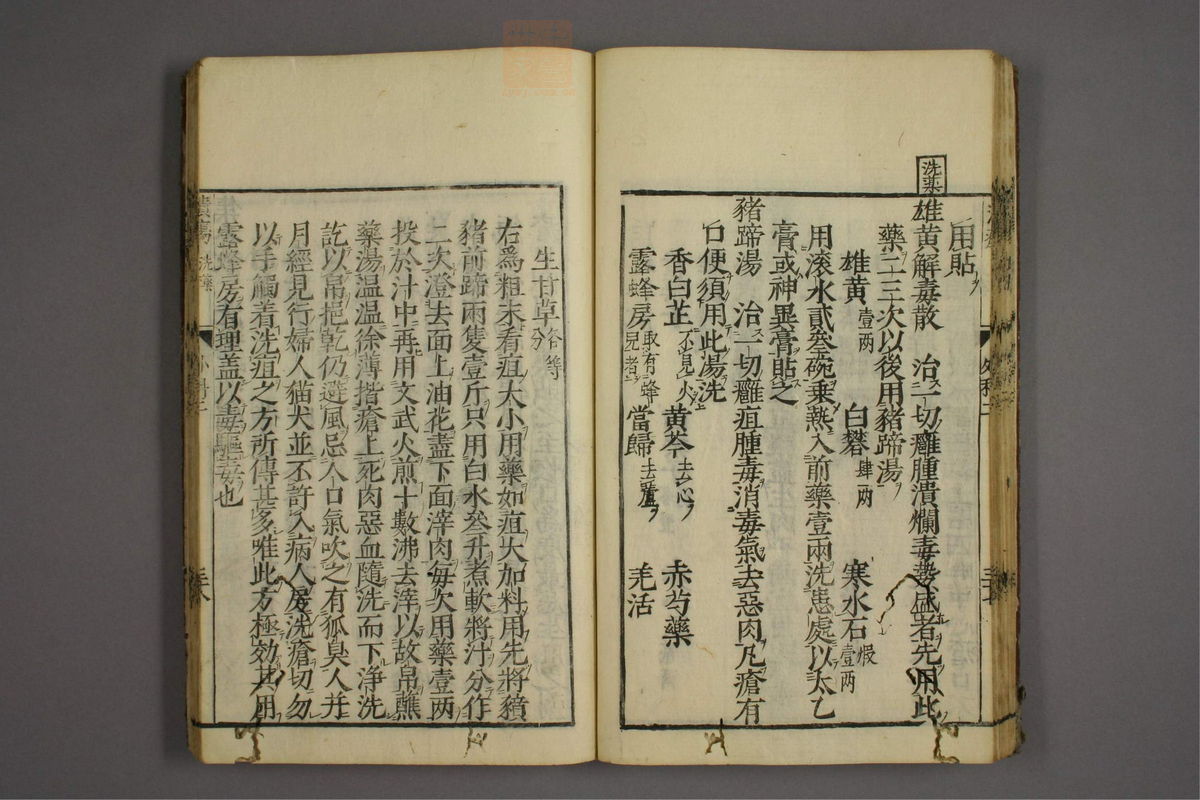 用貼
洗藥
雄黃解毒散 治一切癰腫潰爛毒勢盛者先用此
藥二三次以後用豬蹄湯
雄黃壹兩 白礬肆兩 寒水石煆壹兩
用滾水貳叄碗乗熱入前藥壹兩洗患處以太乙
膏或神異膏貼之
豬蹄湯 治一切癰疽腫毒消毒氣去惡肉凡瘡有
口便須用此湯洗
香白芷不見火 黃芩去心 赤芍藥
露蜂房取有蜂兒者 當歸去蘆 羌活
外科二
生甘草各等分
右爲粗末看疽大小用藥如疽大加料用先將豶
豬前蹄兩隻壹斤只用白水叄升煮軟將汁分作
二次澄去面上油花盡下面滓肉每次用藥壹两
投於汁中再用文武火煎十數沸去滓以故帛蘸
藥湯溫溫徐薄揩瘡上死肉惡血隨洗而下淨洗
訖以帛挹乾仍避風忌人口氣吹之有狐臭人并
月經見行婦人猫犬並不許入病人房洗瘡切勿
以手觸着洗疽之方所傳甚多唯此方極効其用
露蜂房有理盖以毒驅毒也
洗藥
外科二